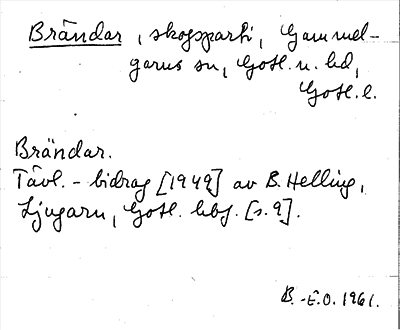 Brändar, skogsparti, Gammel-
garns sn, Gotl. n. hd,
Gotl. l.
Brändar.
Tävl. - bidrag [1949] av B. Helling,
Ljugarn, Gotl. hbf. [s. 9].
B. -E.O. 1961.